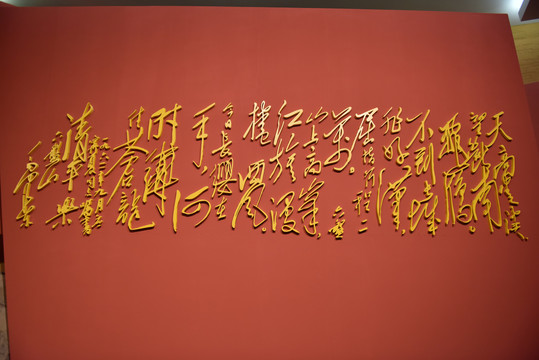 天高云淡
望断南
飞雁
不到长城
非好汉
屈指行程二
万
六盘
山上高峰
红旗漫
卷西风
今日长缨在
手，何
时缚
住苍龙
清平乐
六盘山